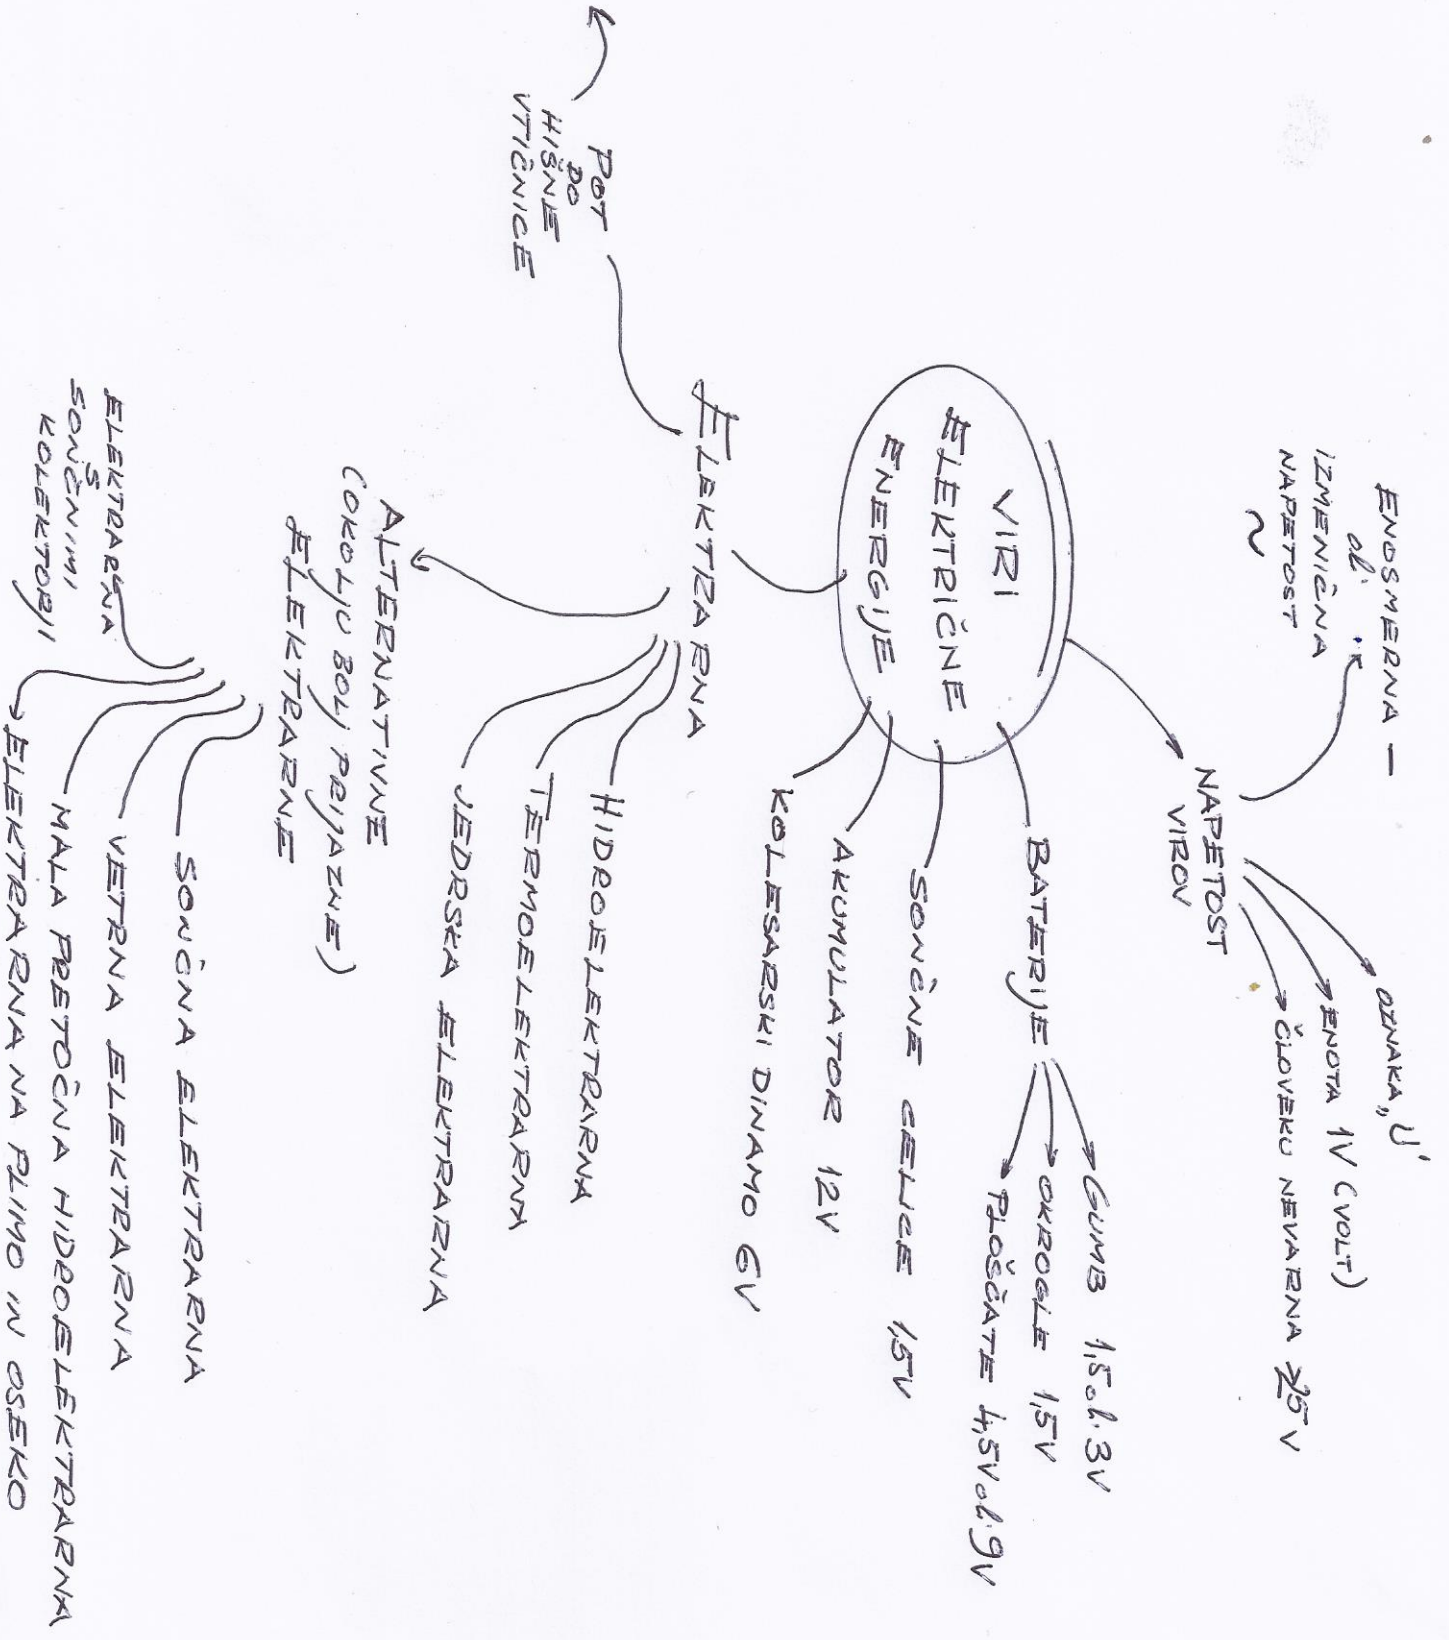 ENOSMERNA —
ali
IZMENIČNA
NAPETOST
~
NAPETOST
VIROV
OZNAKA „U'
ENOTA 1V (VOLT)
ČLOVEKU NEVARNA ≥25 V
VIRI
ELEKTRIČNE
ENERGIJE
BATERIJE
GUMB 1,5 ali 3V
OKROGLE 1,5V
PLOŠČATE 4,5V ali 9V
SONČNE CELICE 1,5V
AKUMULATOR 12V
KOLESARSKI DINAMO 6V
ELEKTRARNA
POT
DO
HIŠNE
VTIČNICE
HIDROELEKTRARNA
TERMOELEKTRARNA
JEDRSKA ELEKTRARNA
ALTERNATIVNE
(OKOLJU BOLJ PRIJAZNE)
ELEKTRARNE
SONČNA ELEKTRARNA
VETRNA ELEKTRARNA
MALA PRETOČNA HIDROELEKTRARNA
ELEKTRARNA NA PLIMO IN OSEKO
ELEKTRARNA
S
SONČNIMI
KOLEKTORJI